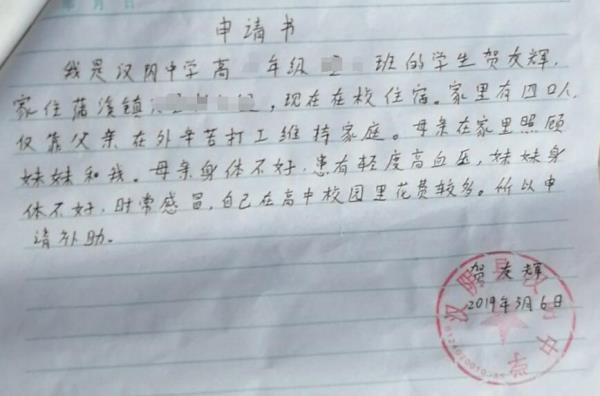 年 月 日
申请书
我是汉阴中学高 年级 班的学生贺友辉,
家住蒲溪镇 ,现在在校住宿。家里有四口人
仅靠父亲在外辛苦打工维持家庭。母亲在家里照顾
妹妹和我。母亲身体不好,患有轻度高血压,妹妹身
体不好,时常感冒,自己在高中校园里花费较多。所以申
请补助。
贺友辉
2019年3月6日